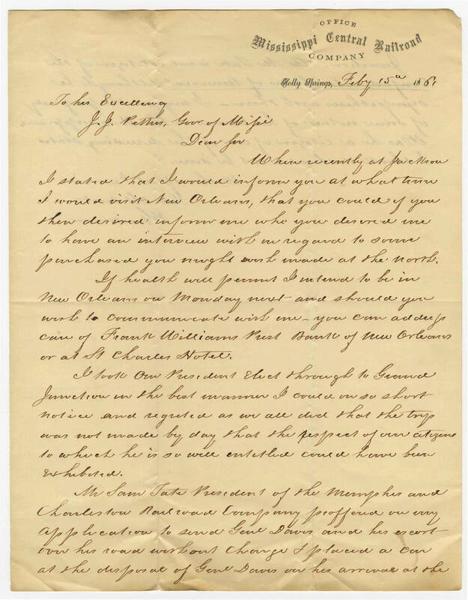 OFFICE
Mississippi Central Railroad
COMPANY
Holly Springs, Feby 15th 1861
To his Excellency
J. J. Pettus, Govr of Missi
Dear Sir
When recently at Jackson
I stated that I would inform you at what time
I would visit New Orleans, that you could if you
then desired inform me who you desired me
to have an interview with in regard to some
purchased you might wish made at the north.
If health will permit I intend to be in
New Orleans on Monday next and should you
wish to communicate with me - you can address
care of Frank Williams Prest Bank of New Orleans
or at St Charles Hotel.
I took our President Elect through to Grand
Junction in the best manner I could on so short
notice and regreted as we all did that the trip
was not made by day that the respect of our citizens
to which he is so well entitled could have been
exhibited.
Mr Sam Tate President of the Memphis and
Charleston Railroad Company proffered on my
application to send Genl Davis and his escort
over his road without charge & placed a car
at the disposal of Genl Davis on his arrival at the